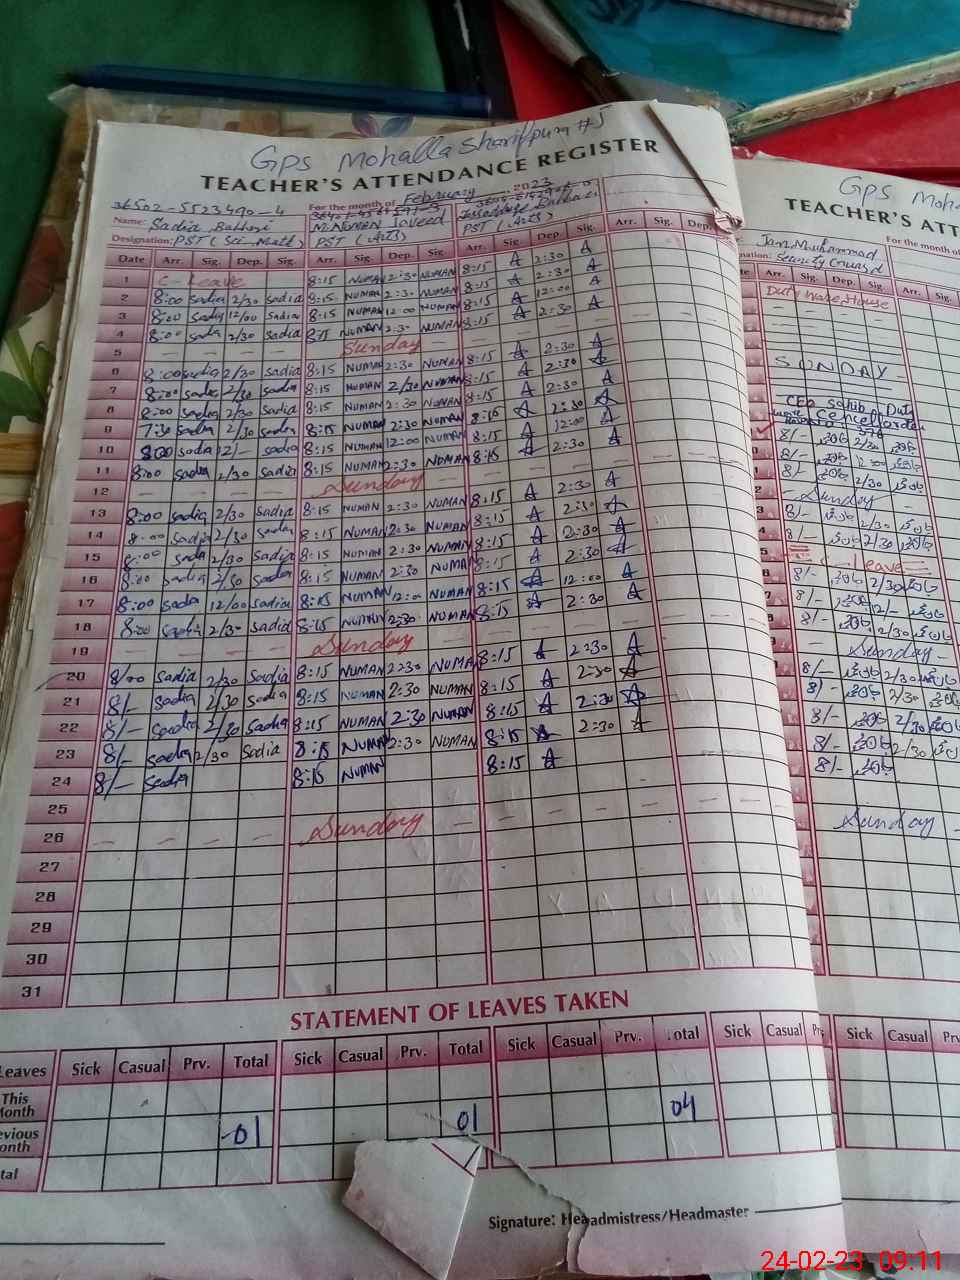 GPS Mohalla Sharifpura #5
TEACHER'S ATTENDANCE REGISTER
For the month of February 2023
36502-5523490-4
Name: Sadia Batool M. Numan Javeed
Designation: PST (Sci-Math) PST (Arts) PST (Arts)
Date Arr. Sig. Dep. Sig. Arr. Sig. Dep. Sig. Arr. Sig. Dep. Sig. Arr. Sig. Dep. Sig.
1 C-Leave 8:15 NUMAN 2:30 NUMAN 8:15 A 2:30 A
2 8:00 sadia 2/30 sadia 8:15 NUMAN 2:30 NUMAN 8:15 A 2:30 A
3 8:00 sadia 12/00 sadia 8:15 NUMAN 12:00 NUMAN 8:15 A 12:00 A
4 8:00 sadia 2/30 sadia 8:15 NUMAN 2:30 NUMAN 8:15 A 2:30 A
5 Sunday
6 8:00 sadia 2/30 sadia 8:15 NUMAN 2:30 NUMAN 8:15 A 2:30 A
7 8:00 sadia 2/30 sadia 8:15 NUMAN 2/30 NUMAN 8:15 A 2:30 A
8 8:00 sadia 2/30 sadia 8:15 NUMAN 2:30 NUMAN 8:15 A 2:30 A
9 7:30 sadia 2/30 sadia 8:15 NUMAN 2:30 NUMAN 8:15 A 2:30 A
10 8:00 sadia 12/- sadia 8:15 NUMAN 12:00 NUMAN 8:15 A 12:00 A
11 8:00 sadia 2/30 sadia 8:15 NUMAN 2:30 NUMAN 8:15 A 2:30 A
12 Sunday
13 8:00 sadia 2/30 sadia 8:15 NUMAN 2:30 NUMAN 8:15 A 2:30 A
14 8:00 sadia 2/30 sadia 8:15 NUMAN 2:30 NUMAN 8:15 A 2:30 A
15 8:00 sadia 2/30 sadia 8:15 NUMAN 2:30 NUMAN 8:15 A 2:30 A
16 8:00 sadia 2/30 sadia 8:15 NUMAN 2:30 NUMAN 8:15 A 2:30 A
17 8:00 sadia 12/00 sadia 8:15 NUMAN 12:00 NUMAN 8:15 A 12:00 A
18 8:00 sadia 2/30 sadia 8:15 NUMAN 2:30 NUMAN 8:15 A 2:30 A
19 Sunday
20 8/00 sadia 2/30 sadia 8:15 NUMAN 2:30 NUMAN 8:15 A 2:30 A
21 8/- sadia 2/30 sadia 8:15 NUMAN 2:30 NUMAN 8:15 A 2:30 A
22 8/- sadia 2/30 sadia 8:15 NUMAN 2:30 NUMAN 8:15 A 2:30 A
23 8/- sadia 2/30 Sadia 8:15 NUMAN 2:30 NUMAN 8:15 A 2:30 A
24 8/- sadia 8:15 NUMAN 8:15 A
25
26 Sunday
27
28
29
30
31
STATEMENT OF LEAVES TAKEN
Leaves Sick Casual Prv. Total Sick Casual Prv. Total Sick Casual Prv. Total Sick Casual
This Month
evious onth 01 01 04
tal
Signature: Headmistress/Headmaster
GPS Moha
TEACHER'S ATT
For the month of
Jan Muhammad
Security Guard
Date Arr. Sig. Dep. Sig. Arr. Sig.
Duty Ware House
SUNDAY
CEO Sahib Duty
8/- 2/30
8/-
8/- 2/30
Sunday
8/- 2/30
8/- 2/30
Leave
8/- 2/30
8/- 12/-
8/- 2/30
Sunday
8/- 2/30
8/- 2/30
8/- 2/30
8/- 2/30
8/-
Sunday
Sick Casual Prv
24-02-23 09:11